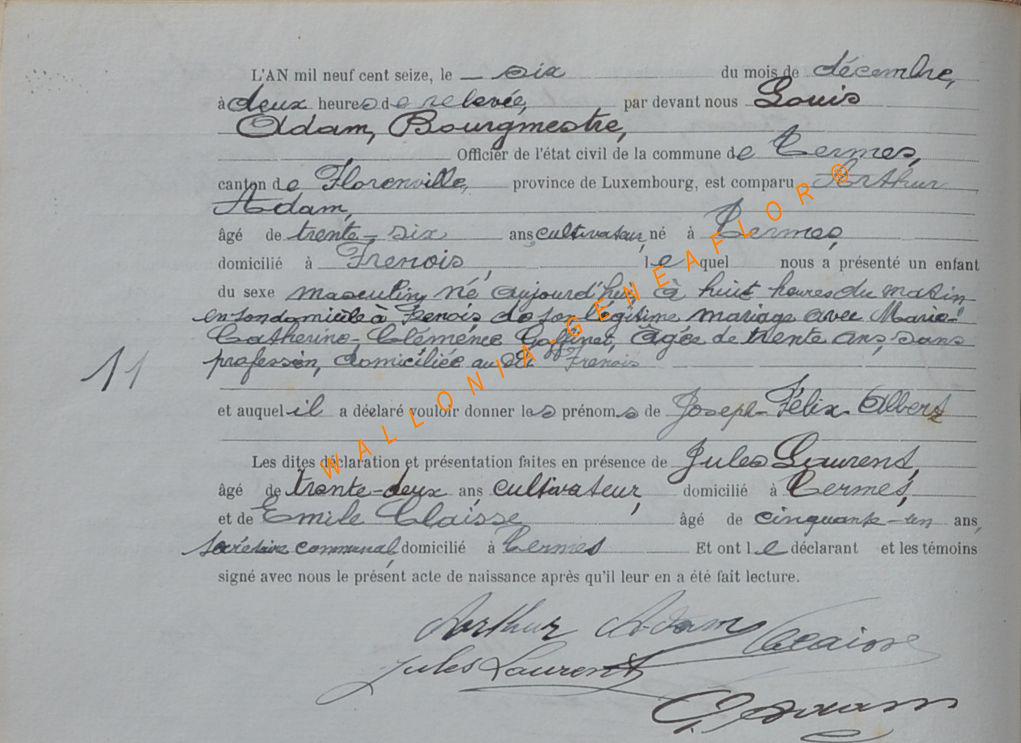 L'AN mil neuf cent seize, le six du mois de décembre,
à deux heures de relevée, par devant nous Louis
Adam, Bourgmestre,
Officier de l'état civil de la commune de Termes,
canton de Florenville, province de Luxembourg, est comparu Arthur
Adam,
âgé de trente-six ans, cultivateur, né à Termes,
domicilié à Frenois, lequel nous a présenté un enfant
du sexe masculin, né aujourd'hui à huit heures du matin
en son domicile à Frenois de son légitime mariage avec Marie-
Catherine-Clémence, âgée de trente ans, sans
profession, domiciliée au dit Frenois
11
et auquel il a déclaré vouloir donner les prénoms de Joseph-Félix-Albert
Les dites déclaration et présentation faites en présence de Jules Laurent,
âgé de trente-deux ans cultivateur, domicilié à Termes,
et de Emile Claisse âgé de cinquante-un ans,
secrétaire communal, domicilié à Termes Et ont le déclarant et les témoins
signé avec nous le présent acte de naissance après qu'il leur en a été fait lecture.
Arthur Adam Claisse
Jules Laurent
L. Adam
WALLONIA-GENEAFLOR ®